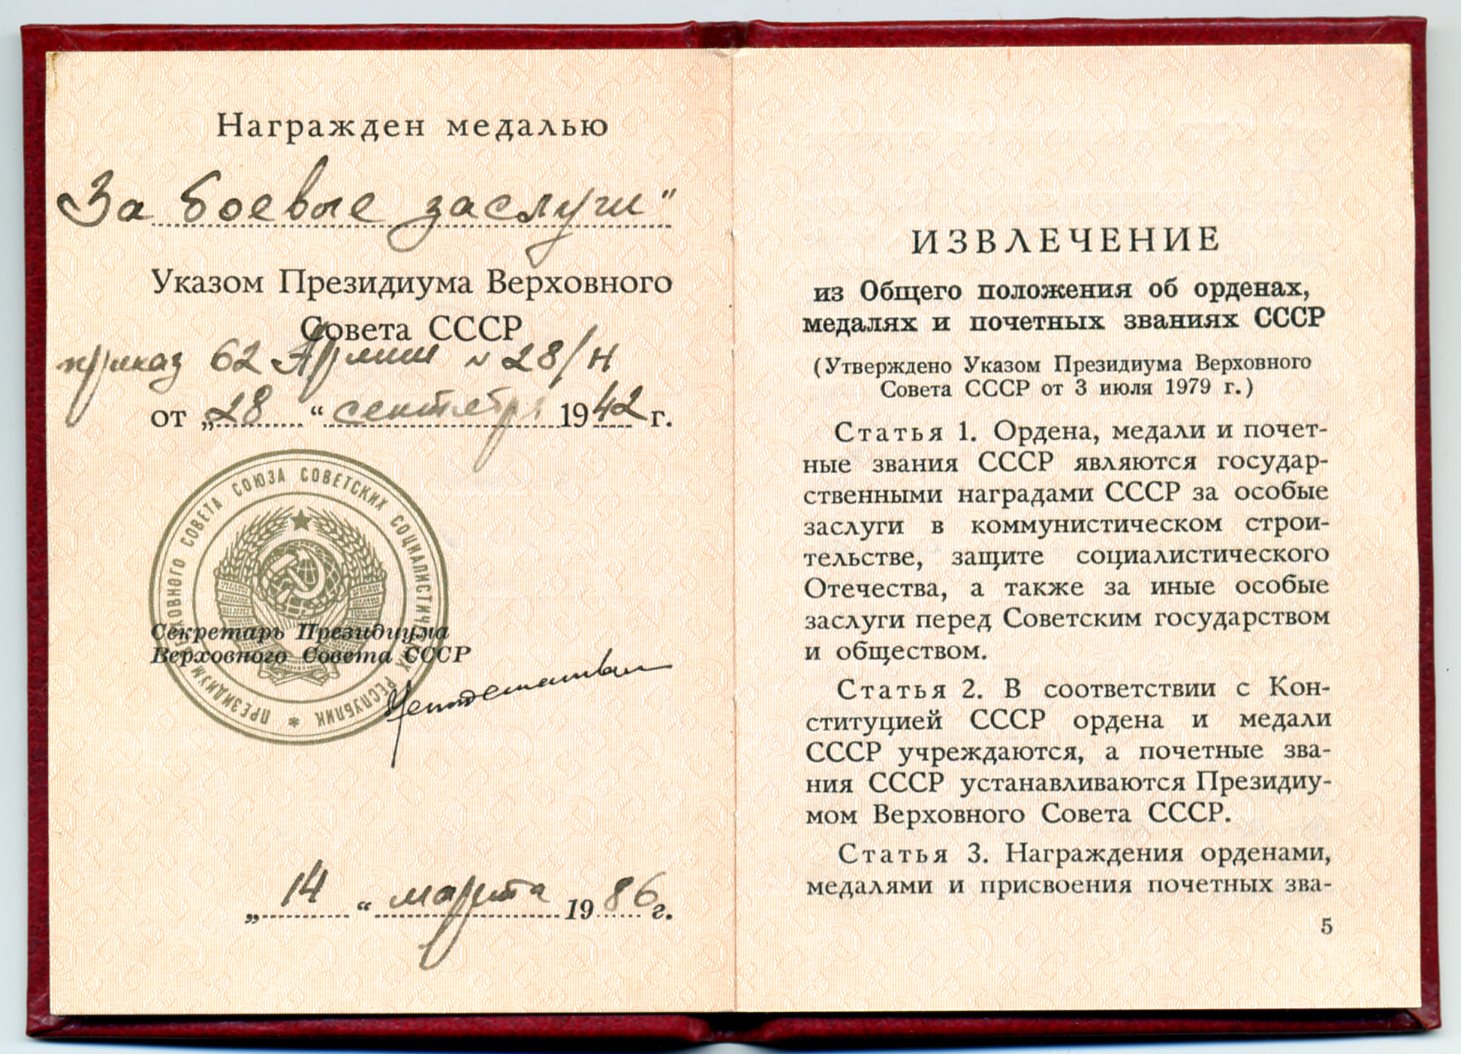 Награжден медалью
За боевые заслуги"
Указом Президиума Верховного
Совета СССР
приказ 62 Армии № 28/н
от „28 “ сентября 1942 г.
ПРЕЗИДИУМ ВЕРХОВНОГО СОВЕТА СОЮЗА СОВЕТСКИХ СОЦИАЛИСТИЧЕСКИХ РЕСПУБЛИК *
Секретарь Президиума
Верховного Совета СССР
„14 “ марта 1986 г.
ИЗВЛЕЧЕНИЕ
из Общего положения об орденах,
медалях и почетных званиях СССР
(Утверждено Указом Президиума Верховного
Совета СССР от 3 июля 1979 г.)
Статья 1. Ордена, медали и почет-
ные звания СССР являются государ-
ственными наградами СССР за особые
заслуги в коммунистическом строи-
тельстве, защите социалистического
Отечества, а также за иные особые
заслуги перед Советским государством
и обществом.
Статья 2. В соответствии с Кон-
ституцией СССР ордена и медали
СССР учреждаются, а почетные зва-
ния СССР устанавливаются Президиу-
мом Верховного Совета СССР.
Статья 3. Награждения орденами,
медалями и присвоения почетных зва-
5